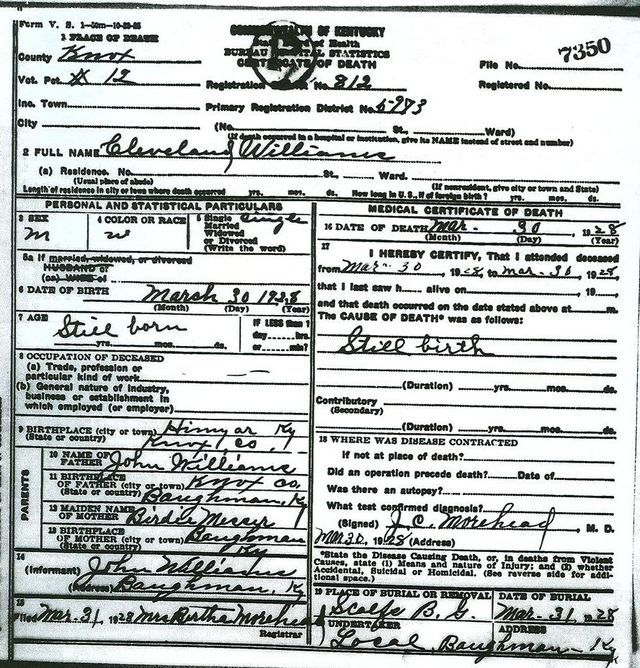 Form V. S. 1-50m-10-23-25
COMMONWEALTH OF KENTUCKY
State Board of Health
BUREAU OF VITAL STATISTICS
CERTIFICATE OF DEATH
1 PLACE OF DEATH
County Knox
Vot. Pct. # 12
Inc. Town
City
File No. 7350
Registration District No. 812
Registered No.
Primary Registration District No. 5-973
(No. St., Ward)
(If death occurred in a hospital or institution, give its NAME instead of street and number)
2 FULL NAME Cleveland Williams
(a) Residence. No. St., Ward.
(Usual place of abode) (If nonresident, give city or town and State)
Length of residence in city or town where death occurred yrs. mos. ds. How long in U.S., if of foreign birth? yrs. mos. ds.
PERSONAL AND STATISTICAL PARTICULARS
3 SEX
m
4 COLOR OR RACE
w
5 Single
Married
Widowed
or Divorced
(Write the word)
Single
5a If married, widowed, or divorced
HUSBAND of
(or) WIFE of
6 DATE OF BIRTH March 30 1928
(Month) (Day) (Year)
7 AGE
Still born
yrs. mos. ds.
IF LESS than 1
day hrs.
or min.?
8 OCCUPATION OF DECEASED
(a) Trade, profession or
particular kind of work
(b) General nature of industry,
business or establishment in
which employed (or employer)
9 BIRTHPLACE (city or town) Himyar Ky
(State or country) Knox Co.
PARENTS
10 NAME OF
FATHER John Williams
11 BIRTHPLACE
OF FATHER (city or town) Knox Co.
(State or country) Baughman, Ky
12 MAIDEN NAME
OF MOTHER Birdie Messer
13 BIRTHPLACE
OF MOTHER (city or town) Baughman
(State or country) Ky
14
(Informant) John Williams
(Address) Baughman, Ky
15
Filed Mar. 31, 1928 Mrs Bertha Morehead
Registrar
MEDICAL CERTIFICATE OF DEATH
16 DATE OF DEATH Mar. 30, 1928
(Month) (Day) (Year)
17
I HEREBY CERTIFY, That I attended deceased
from Mar. 30, 1928 to Mar. 30, 1928
that I last saw h alive on , 19
and that death occurred on the date stated above at m.
The CAUSE OF DEATH* was as follows:
Still birth
(Duration) yrs. mos. ds.
Contributory
(Secondary)
(Duration) yrs. mos. ds.
18 WHERE WAS DISEASE CONTRACTED
if not at place of death?
Did an operation precede death? Date of
Was there an autopsy?
What test confirmed diagnosis?
(Signed) J. C. Morehead, M. D.
Mar 30, 1928 (Address)
*State the Disease Causing Death, or, in deaths from Violent
Causes, state (1) Means and nature of Injury; and (2) whether
Accidental, Suicidal or Homicidal. (See reverse side for addi-
tional space.)
19 PLACE OF BURIAL OR REMOVAL DATE OF BURIAL
Scalfs B. G. Mar. 31, 1928
UNDERTAKER ADDRESS
Local Baughman Ky